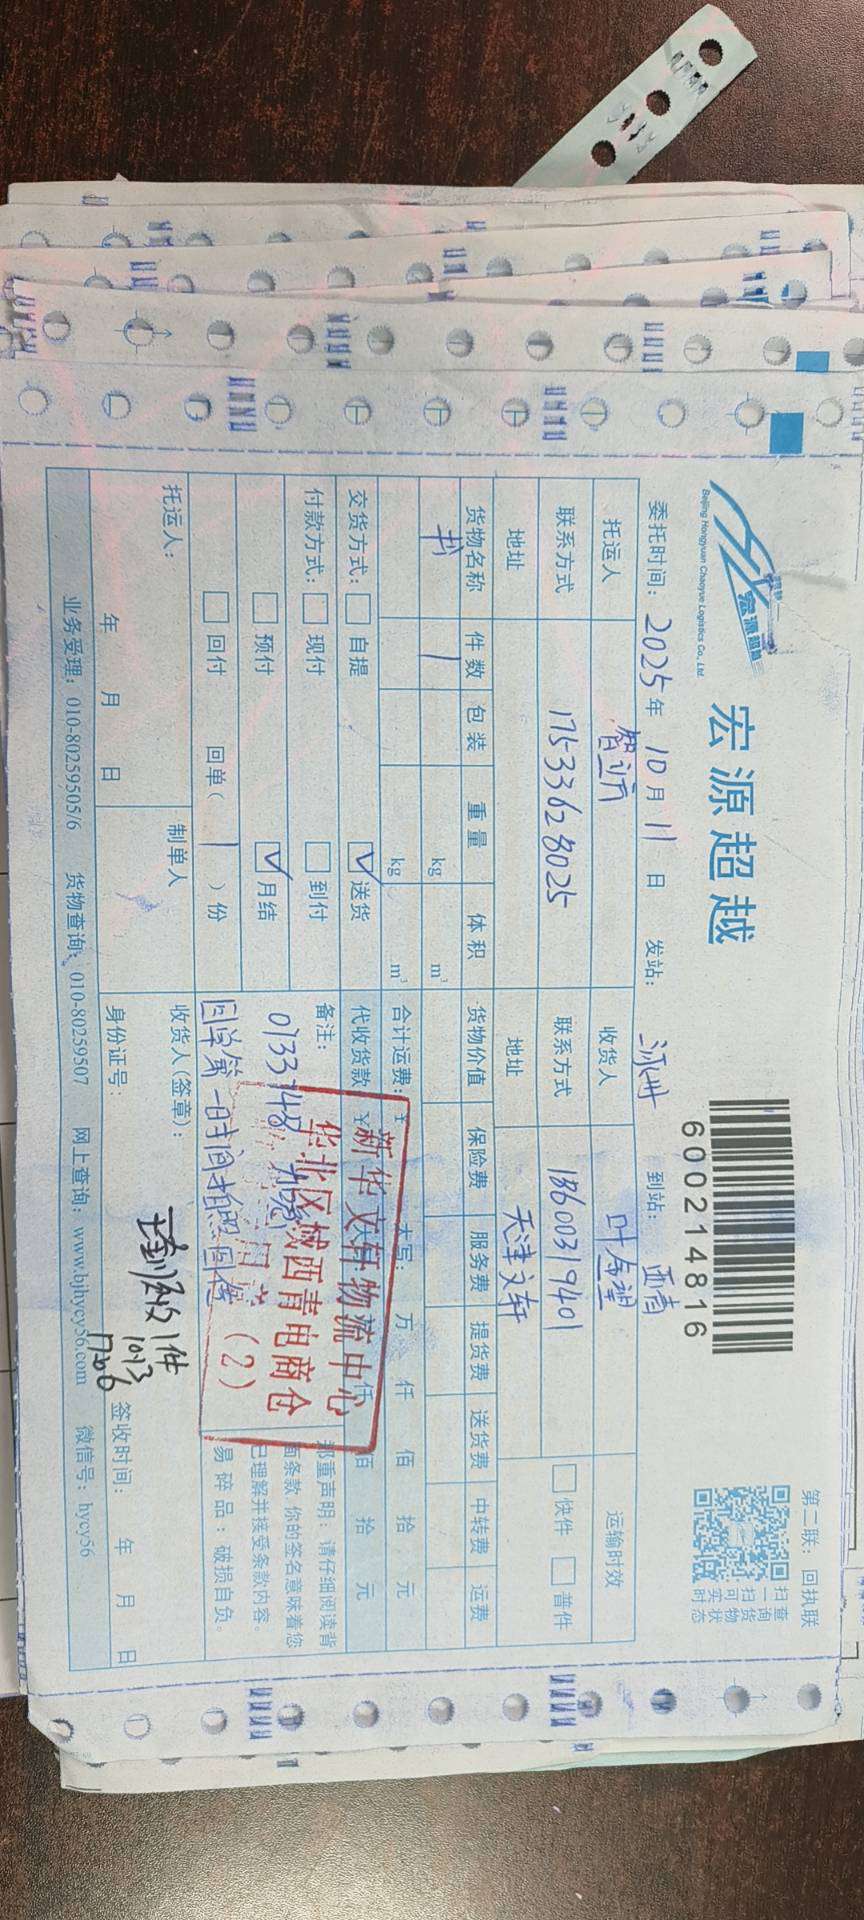 宏源超越
Beijing Hongyuan Chaoyue Logistics Co., Ltd.
宏源超越
600214816
第二联：回执联
扫一扫可实时
查询货物状态
委托时间：2025年10月11日 发站： 到站：西青
托运人 智立方 收货人 运输时效
联系方式 17533628025 联系方式 18600319401 快件 普件
地址 地址 天津文轩
货物名称 件数 包装 重量 体积 货物价值 保险费 服务费 提货费 送货费 中转费 运费
书 1 kg m³
kg m³ 合计运费：￥ 大写： 万 仟 佰 拾 元
交货方式： 自提 ✓送货 代收货款 ￥ 仟 佰 拾 元
付款方式： 现付 到付 备注：
预付 ✓月结 0133748
回付 回单（1）份 回单第一时间拍照回传
郑重声明：请仔细阅读背
面条款 你的签名意味着您
已理解并接受条款内容。
易碎品：破损自负。
新华文轩物流中心
华北区域西青电商仓
（2）
托运人： 制单人 收货人(签章)：
1件
10.13
年 月 日 身份证号： 签收时间： 年 月 日
业务受理：010-80259505/6 货物查询：010-80259507 网上查询：www.bjhycy56.com 微信号：hycy56